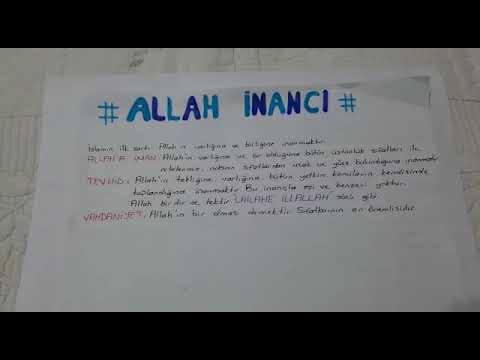 # ALLAH İNANCI #
İslamın ilk şartı Allah'ın varlığına ve birliğine inanmaktır.
ALLAH'A İMAN: Allah'ın varlığına ve bir olduğuna bütün üstünlük sıfatları ile
nitelenmiş, noksan sıfatlardan uzak ve yüce bulunduğuna inanmaktır
TEVHİD: Allah'ın tekliğine, varlığına, bütün yetkin
toplandığına inanmaktır. Bu inançta eşi ve benzeri yoktur.
Allah birdir ve tektir. LAİLAHE İLLALLAH sözü gibi.
VAHDANİYET: Allah'ın bir olması demektir. Sıfatlarının en önemlisidir.